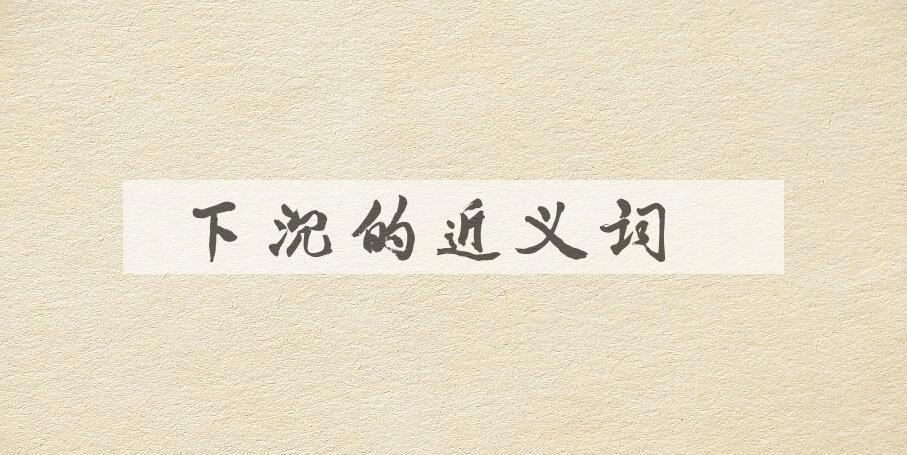 下沉的近义词